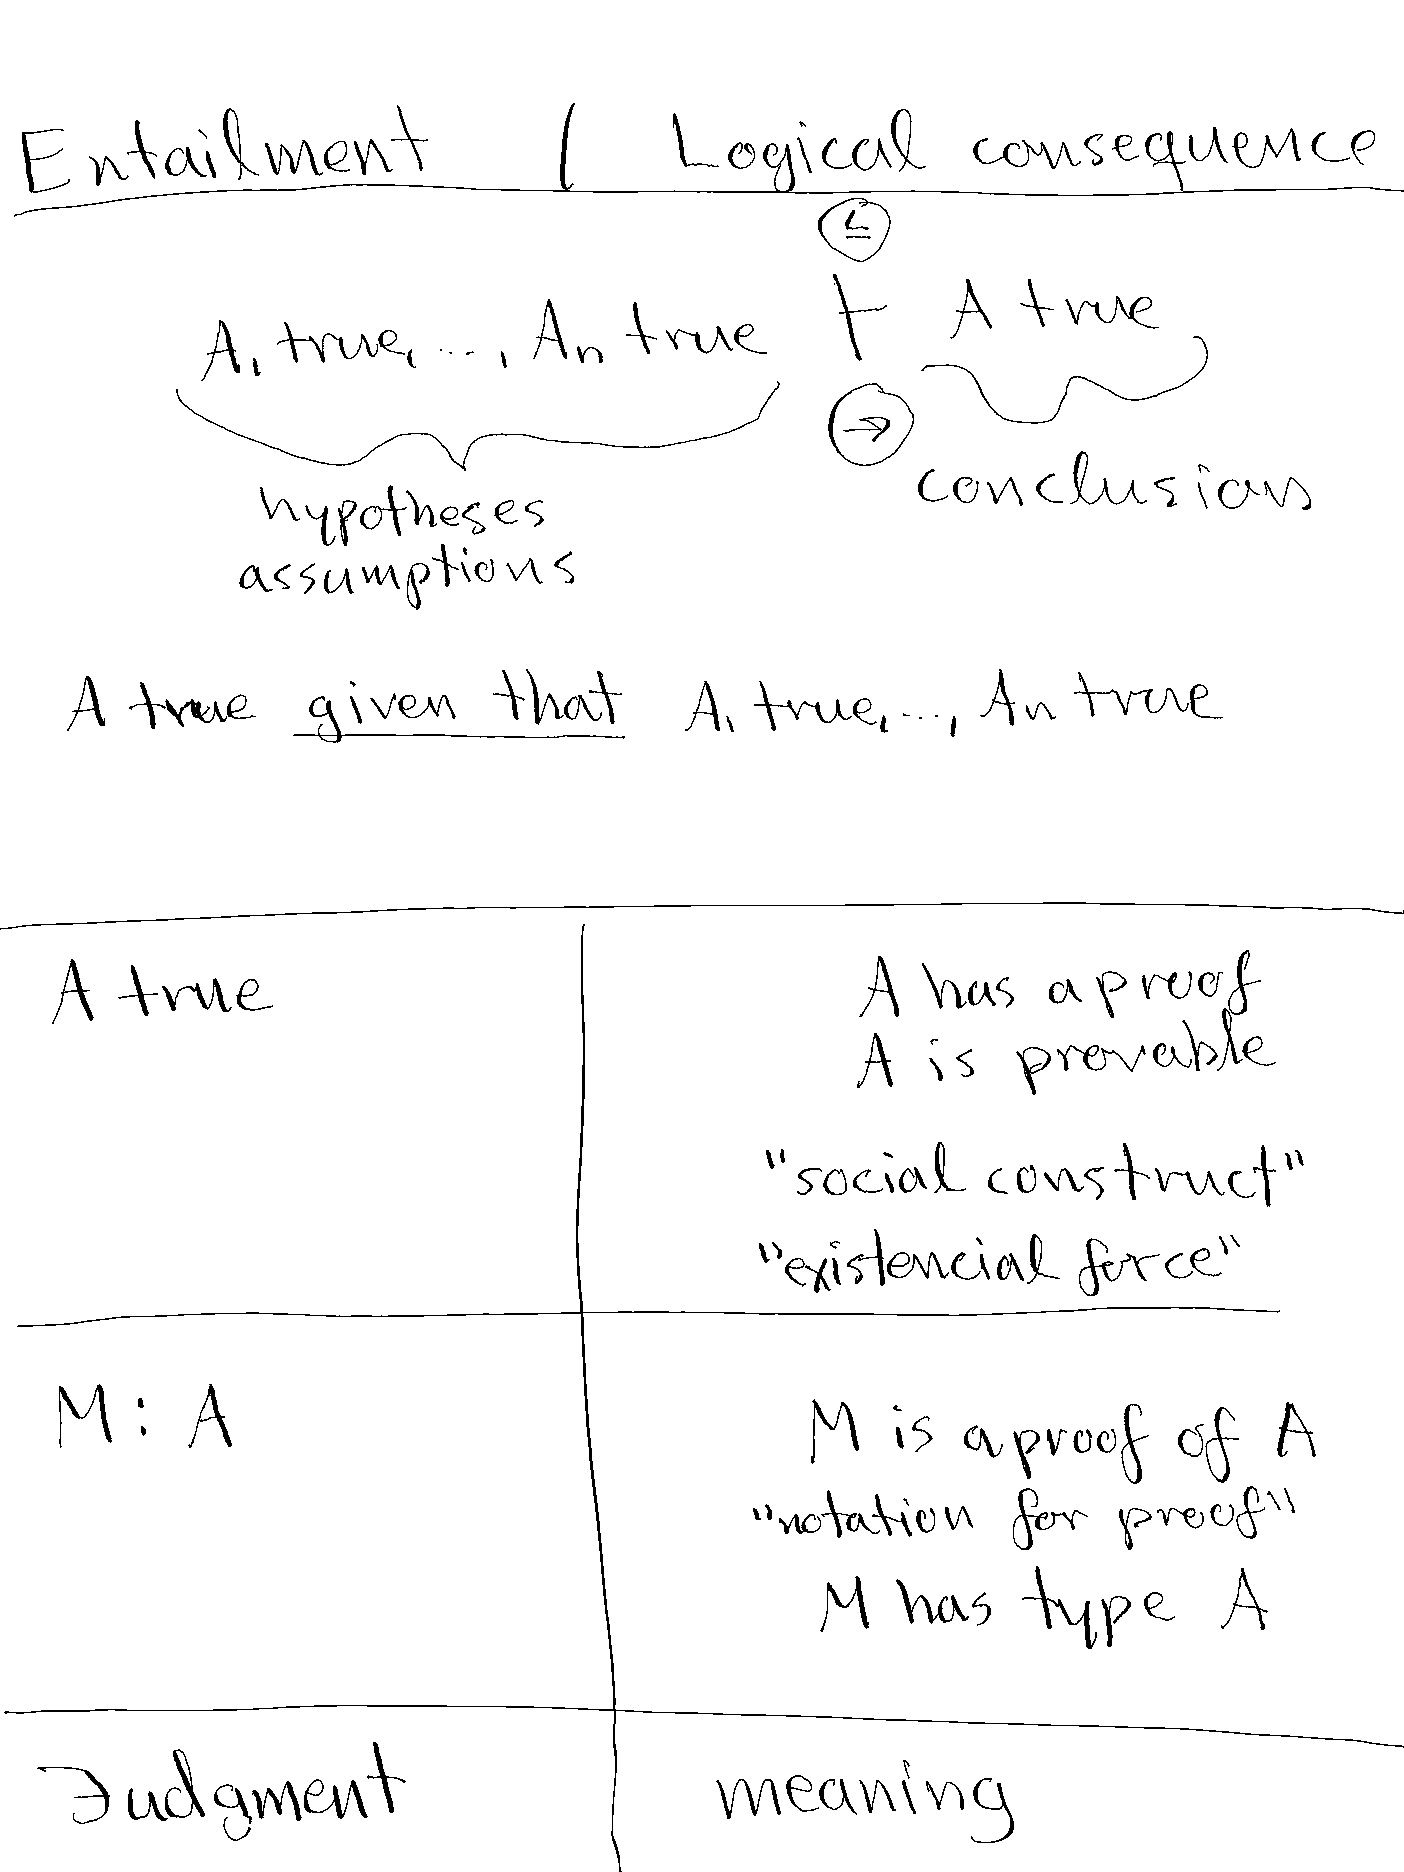 Entailment / Logical consequence
≤
A₁ true, ..., Aₙ true ⊢ A true
→
hypotheses
assumptions
conclusions
A true given that A₁ true, ..., Aₙ true
A true
A has a proof
A is provable
"social construct"
"existencial force"
M : A
M is a proof of A
"notation for proof"
M has type A
Judgment meaning